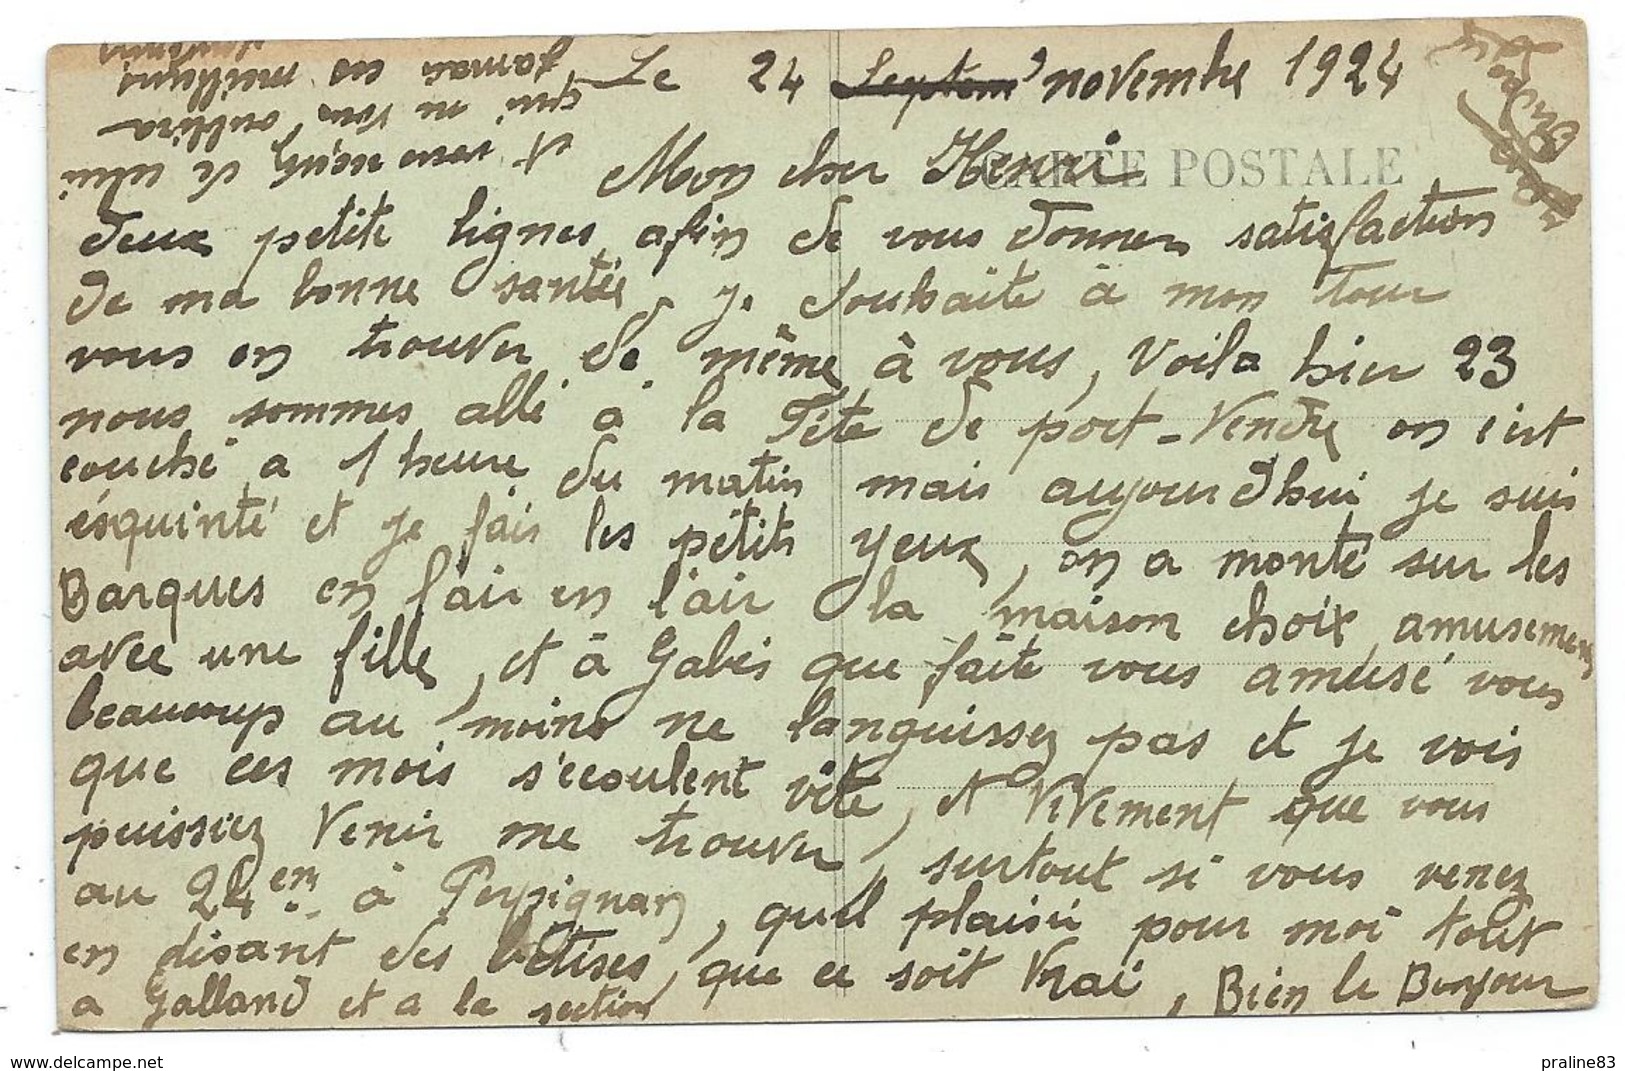 Le 24 Septem novembre 1924
CARTE POSTALE
Mon cher Henri
deux petite lignes afin de vous donner satisfaction
de ma bonne santée, je souhaite à mon tour
vous en trouver de même à vous, Voila hier 23
nous sommes allé à la Fête de port-Vendre on s'est
couché a 1 heure du matin mais aujourd'hui je suis
ésquinté et je fais les pétits yeux, on a monté sur les
Barques en l'air en l'air la maison choix, amusement
avec une fille, et à Gabès que faite vous amusé vous
beaucoup au moins ne languissez pas et je vois
que ces mois s'ecoulent vite, et ViVement que vous
puissiez Venir me trouver, surtout si vous venez
au 24em à Perpignan, quel plaisir pour moi tout
en disant des bétises, que ce soit Vrai, Bien le Bonjour
a Galland et a la section
et vous reçevez de celui
qui ne vous oublira
jamais ses meilleurs
souvenirs